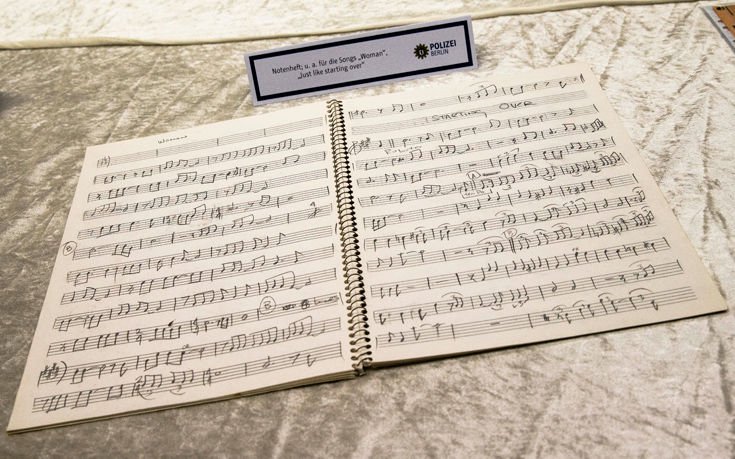 Notenheft; u. a. für die Songs „Woman",
„Just like starting over"
POLIZEI
BERLIN
Woman
STARTING OVER
A
B